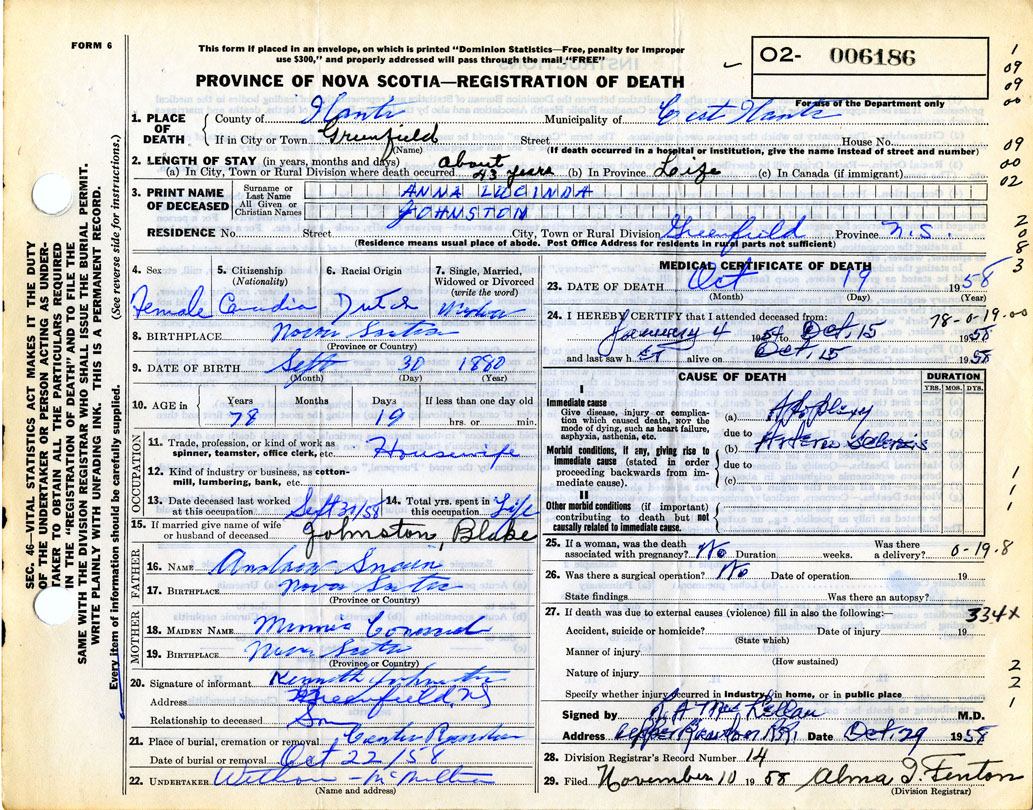 FORM 6
This form if placed in an envelope, on which is printed "Dominion Statistics—Free, penalty for improper
use $300," and properly addressed will pass through the mail "FREE"
PROVINCE OF NOVA SCOTIA—REGISTRATION OF DEATH
O2- 006186
For use of the Department only
1. PLACE OF DEATH { County of Hants Municipality of East Hants
If in City or Town Greenfield Street House No.
(Name) (If death occurred in a hospital or institution, give the name instead of street and number)
2. LENGTH OF STAY (in years, months and days)
(a) In City, Town or Rural Division where death occurred about 43 years (b) In Province Life (c) In Canada (if immigrant)
3. PRINT NAME OF DECEASED { Surname or Last Name ANNA LUCINDA
All Given or Christian Names JOHNSTON
RESIDENCE No. Street City, Town or Rural Division Greenfield Province N.S.
(Residence means usual place of abode. Post Office Address for residents in rural parts not sufficient)
4. Sex 5. Citizenship (Nationality) 6. Racial Origin 7. Single, Married, Widowed or Divorced (write the word)
Female Dutch
8. BIRTHPLACE Nova Scotia
(Province or Country)
9. DATE OF BIRTH Sept 30 1880
(Month) (Day) (Year)
10. AGE in { Years Months Days If less than one day old
78 19 hrs. or min.
OCCUPATION
11. Trade, profession, or kind of work as spinner, teamster, office clerk, etc. Housewife
12. Kind of industry or business, as cotton-mill, lumbering, bank, etc.
13. Date deceased last worked at this occupation 14. Total yrs. spent in this occupation Life
15. If married give name of wife or husband of deceased Johnston, Blake
FATHER
16. NAME Andrew
17. BIRTHPLACE Nova Scotia
(Province or Country)
MOTHER
18. MAIDEN NAME Minnie
19. BIRTHPLACE Nova Scotia
(Province or Country)
20. Signature of informant Kenneth Johnston
Address Greenfield, NS
Relationship to deceased Son
21. Place of burial, cremation or removal Center Rawdon
Date of burial or removal Oct 22/58
22. UNDERTAKER
(Name and address)
MEDICAL CERTIFICATE OF DEATH
23. DATE OF DEATH Oct 19 1958
(Month) (Day) (Year)
24. I HEREBY CERTIFY that I attended deceased from: 78-0-19.00
January 4 to Oct. 15 1958
and last saw h er alive on Oct. 15 1958
CAUSE OF DEATH DURATION
YRS. MOS. DYS.
I
Immediate cause
Give disease, injury or complication which caused death, NOT the mode of dying, such as heart failure, asphyxia, asthenia, etc.
(a) Apoplexy
due to
Morbid conditions, if any, giving rise to immediate cause (stated in order proceeding backwards from immediate cause).
(b) Arterio Sclerosis
due to
(c)
II
Other morbid conditions (if important) contributing to death but not causally related to immediate cause.
25. If a woman, was the death associated with pregnancy? No Duration weeks. Was there a delivery? 0-19.8
26. Was there a surgical operation? No Date of operation 19
State findings Was there an autopsy?
27. If death was due to external causes (violence) fill in also the following:— 334X
Accident, suicide or homicide? Date of injury 19
(State which)
Manner of injury
(How sustained)
Nature of injury
Specify whether injury occurred in industry, in home, or in public place
Signed by M.D.
Address Upper Rawdon RR1 Date Oct. 29 1958
28. Division Registrar's Record Number 14
29. Filed November 10 1958 Alma I. Fenton
(Division Registrar)
1
09
09
00
09
00
02
2
0
8
3
1
1
1
2
2
1
SEC. 46—VITAL STATISTICS ACT MAKES IT THE DUTY
OF THE UNDERTAKER OR PERSON ACTING AS UNDER-
TAKER TO OBTAIN ALL THE PARTICULARS REQUIRED
IN THE "REGISTRATION OF DEATH" AND TO FILE THE
SAME WITH THE DIVISION REGISTRAR WHO SHALL ISSUE THE BURIAL PERMIT.
WRITE PLAINLY WITH UNFADING INK. THIS IS A PERMANENT RECORD.
Every item of information should be carefully supplied. (See reverse side for instructions.)